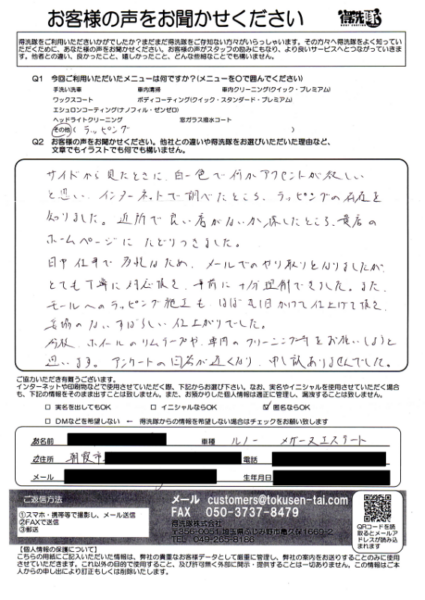 お客様の声をお聞かせください
得洗隊をご利用いただいかがでしたか？まだまだ得洗隊をご存知ない方々がいらっしゃいます。その方々へ得洗隊をよく知っていただくために、あなた様の声をお聞かせください。お客様の声がスタッフの励みにもなり、より良いサービスへとつながっていきます。他者との違い、良かったこと、嬉しかったこと、どんな些細なことでも構いません。
Q1 今回ご利用いただいたメニューは何ですか？(メニューを○で囲んでください)
手洗い洗車 車内清掃 車内クリーニング(クイック・プレミアム)
ワックスコート ボディコーティング(クイック・スタンダード・プレミアム)
エシュロンコーティング(ナノフィル・ゼンゼロ)
ヘッドライトクリーニング 窓ガラス撥水コート
その他(ラッピング )
Q2 お客様の声をお聞かせください。他社との違いや得洗隊をお選びいただいた理由など、
文章でもイラストでも何でも構いません。
サイドから見たときに、白一色で何かアクセントが欲しい
と思い、インターネットで調べたところ、ラッピングの存在を
知りました。近所で良い店がないか探したところ、貴店の
ホームページにたどりつきました。
日中仕事で多忙なため、メールでのやり取りとなりましたが、
とても丁寧に対応頂き、事前に十分理解できました。また、
モールへのラッピング施工も、ほぼ丸1日かけて仕上げて頂き、
妥協のないすばらしい仕上がりでした。
今後、ホイールのリムテープや、車内のクリーニング等をお願いしようと
思います。アンケートの回答が遅くなり、申し訳ありませんでした。
ご協力いただき有難うございます。
インターネットや印刷物などで使用させていただく際、下記からお選び下さい。なお、実名やイニシャルを使用させていただく場合も、下記の情報をそのまま出すことは致しません。また、お預かりした個人情報は適正に管理し、漏洩することは致しません。
□ 実名を出してもOK □ イニシャルならOK ☑ 匿名ならOK
□ DMなどを希望しない ← 得洗隊からの情報を希望しない場合はチェックをお願い致します
お名前 車種 ルノー メガーヌエステート
ご住所 朝霞市 電話
メール 生年月日
ご返信方法
①スマホ・携帯等で撮影し、メール送信
②FAXで送信
③郵送
メール customers@tokusen-tai.com
FAX 050-3737-8479
得洗隊株式会社
〒356-0051埼玉県ふじみ野市亀久保1660-2
TEL 049-265-8166
QRコードを読取るとメールアドレスが読み込まれます
【個人情報の保護について】
こちらの用紙にご記入いただいた情報は、弊社の貴重なお客様データとして厳重に管理し、弊社の案内をお送りするためのみに使用させていただきます。これ以外の目的で使用すること、及び許可無く外部に開示・提供することは一切ありません。この情報はご本人からの申し出により訂正もしくは削除いたします。